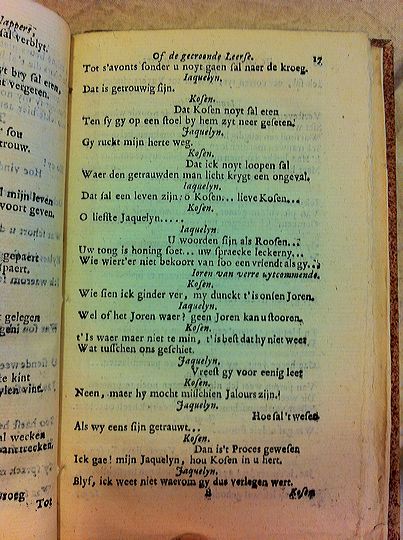 lappert,
sal verblyt.
yt bry sal eten,
t vergeten.
r sou
trouw.
l mijn leven
voort geven.
gepaert
spaert.
t gelegen
geni
te kint
ylen vint.
al wecken
vroeg
Tot
Of de gecroonde Leerse. 17
Tot s'avonts sonder u noyt gaen sal naer de kroeg.
Iaquelyn.
Dat is getrouwig sijn.
Kosen.
Dat Kosen noyt sal eten
Ten sy gy op een stoel by hem zyt neer geseten.
Jaquelyn.
Gy ruckt mijn herte weg.
Kosen.
Dat ick noyt loopen sal
Waer den getrouwden man licht krygt een ongeval.
Iaquelyn.
Dat sal een leven zijn: o Kosen... lieve Kosen...
Kosen.
O liefste Jaquelyn.....
Iaquelyn
U woorden sijn als Roosen...
Uw tong is honing soet... uw spraecke leckerny...
Wie wiert'er niet bekoort van soo een vriendt als gy...
Ioren van verre uytcommende.
Kosen.
Wie sien ick ginder ver, my dunckt t'is onsen Joren.
Iaquelyn.
Wel of het Joren waer? geen Joren kan u stooren.
Kosen.
t'Is waer maer niet te min, t'is best dat hy niet weet
Wat tusschen ons geschiet.
Jaquelyn.
Vreest gy voor eenig leet
Kosen.
Neen, maer hy mocht misschien Jalours zijn.
Jaquelyn.
Hoe sal 't wesen
Als wy eens sijn getrauwt...
Kosen.
Dan is't Proces gewesen
Ick gae! mijn Jaquelyn, hou Kosen in u hert.
Jaquelyn.
Blyf, ick weet niet waerom gy dus verlegen wert.
B Kosen